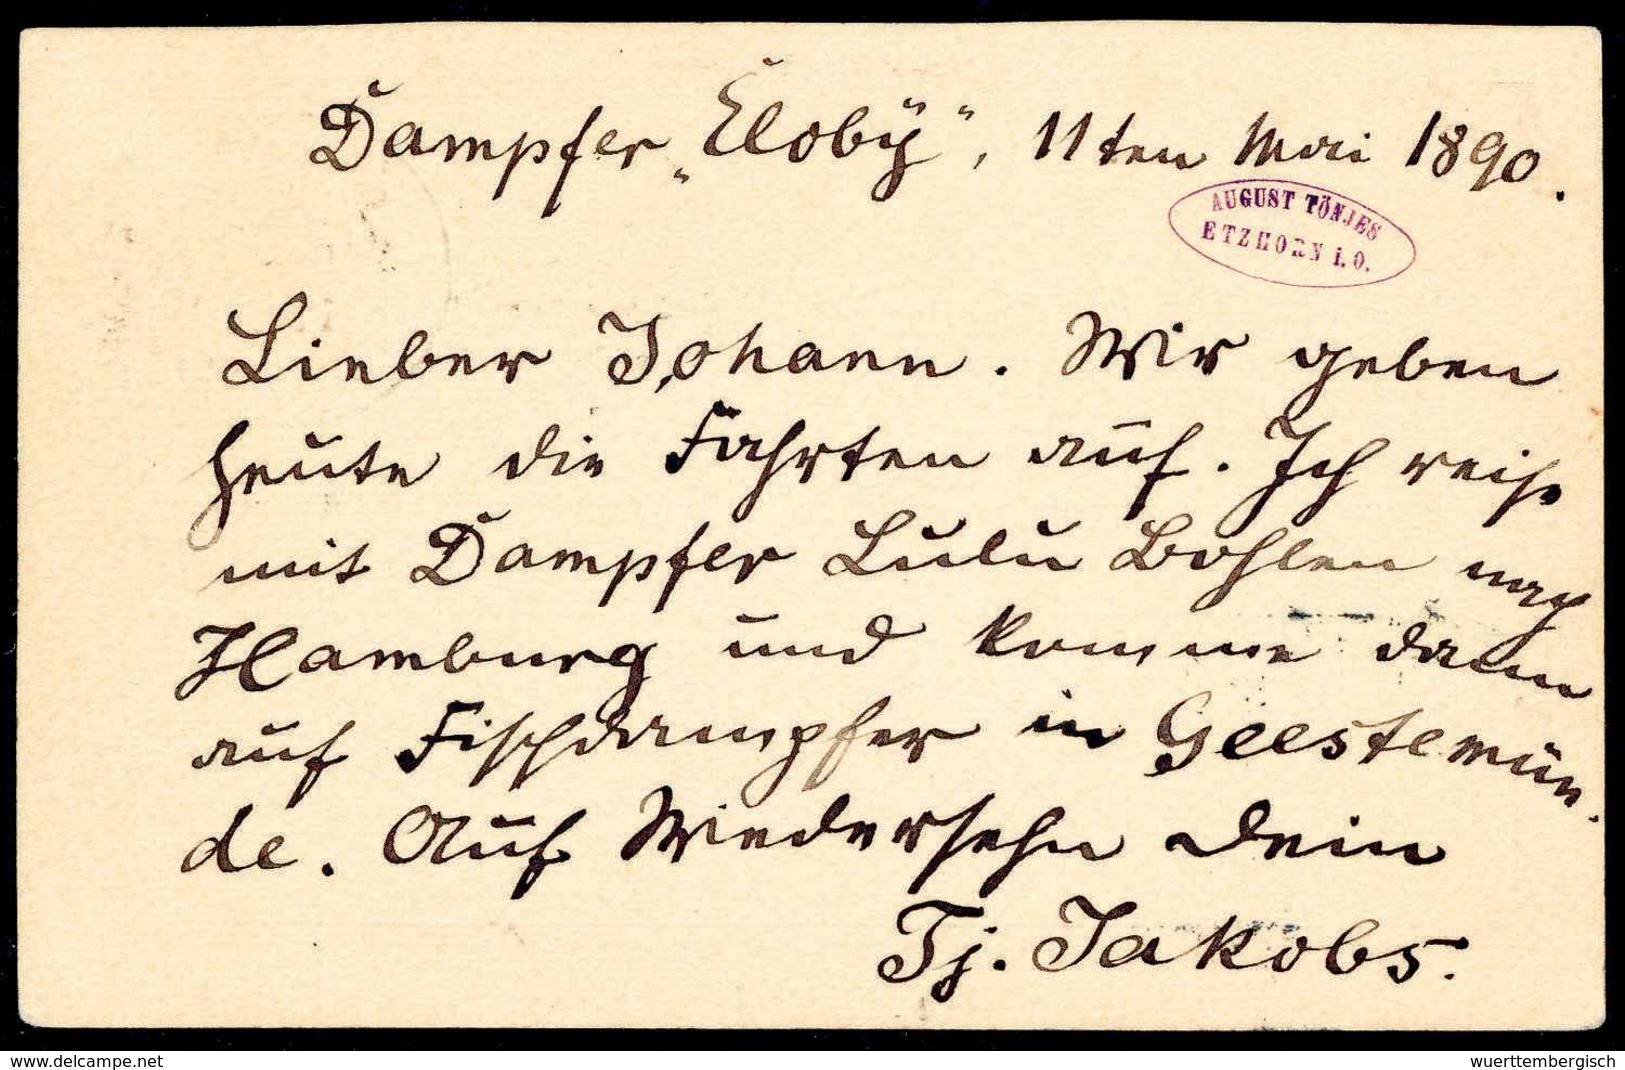 Dampfer „Eloby“, 11ten Mai 1890.
AUGUST TÖNJES
ETZHORN i. O.
Lieber Johann. Wir geben
heute die Fahrten auf. Ich reise
mit Dampfer Lulu Bohlen nach
Hamburg und komme dann
auf Fischdampfer in Geestemün-
de. Auf Wiedersehn Dein
Tj. Jakobs.
www.delcampe.net
wuerttembergisch